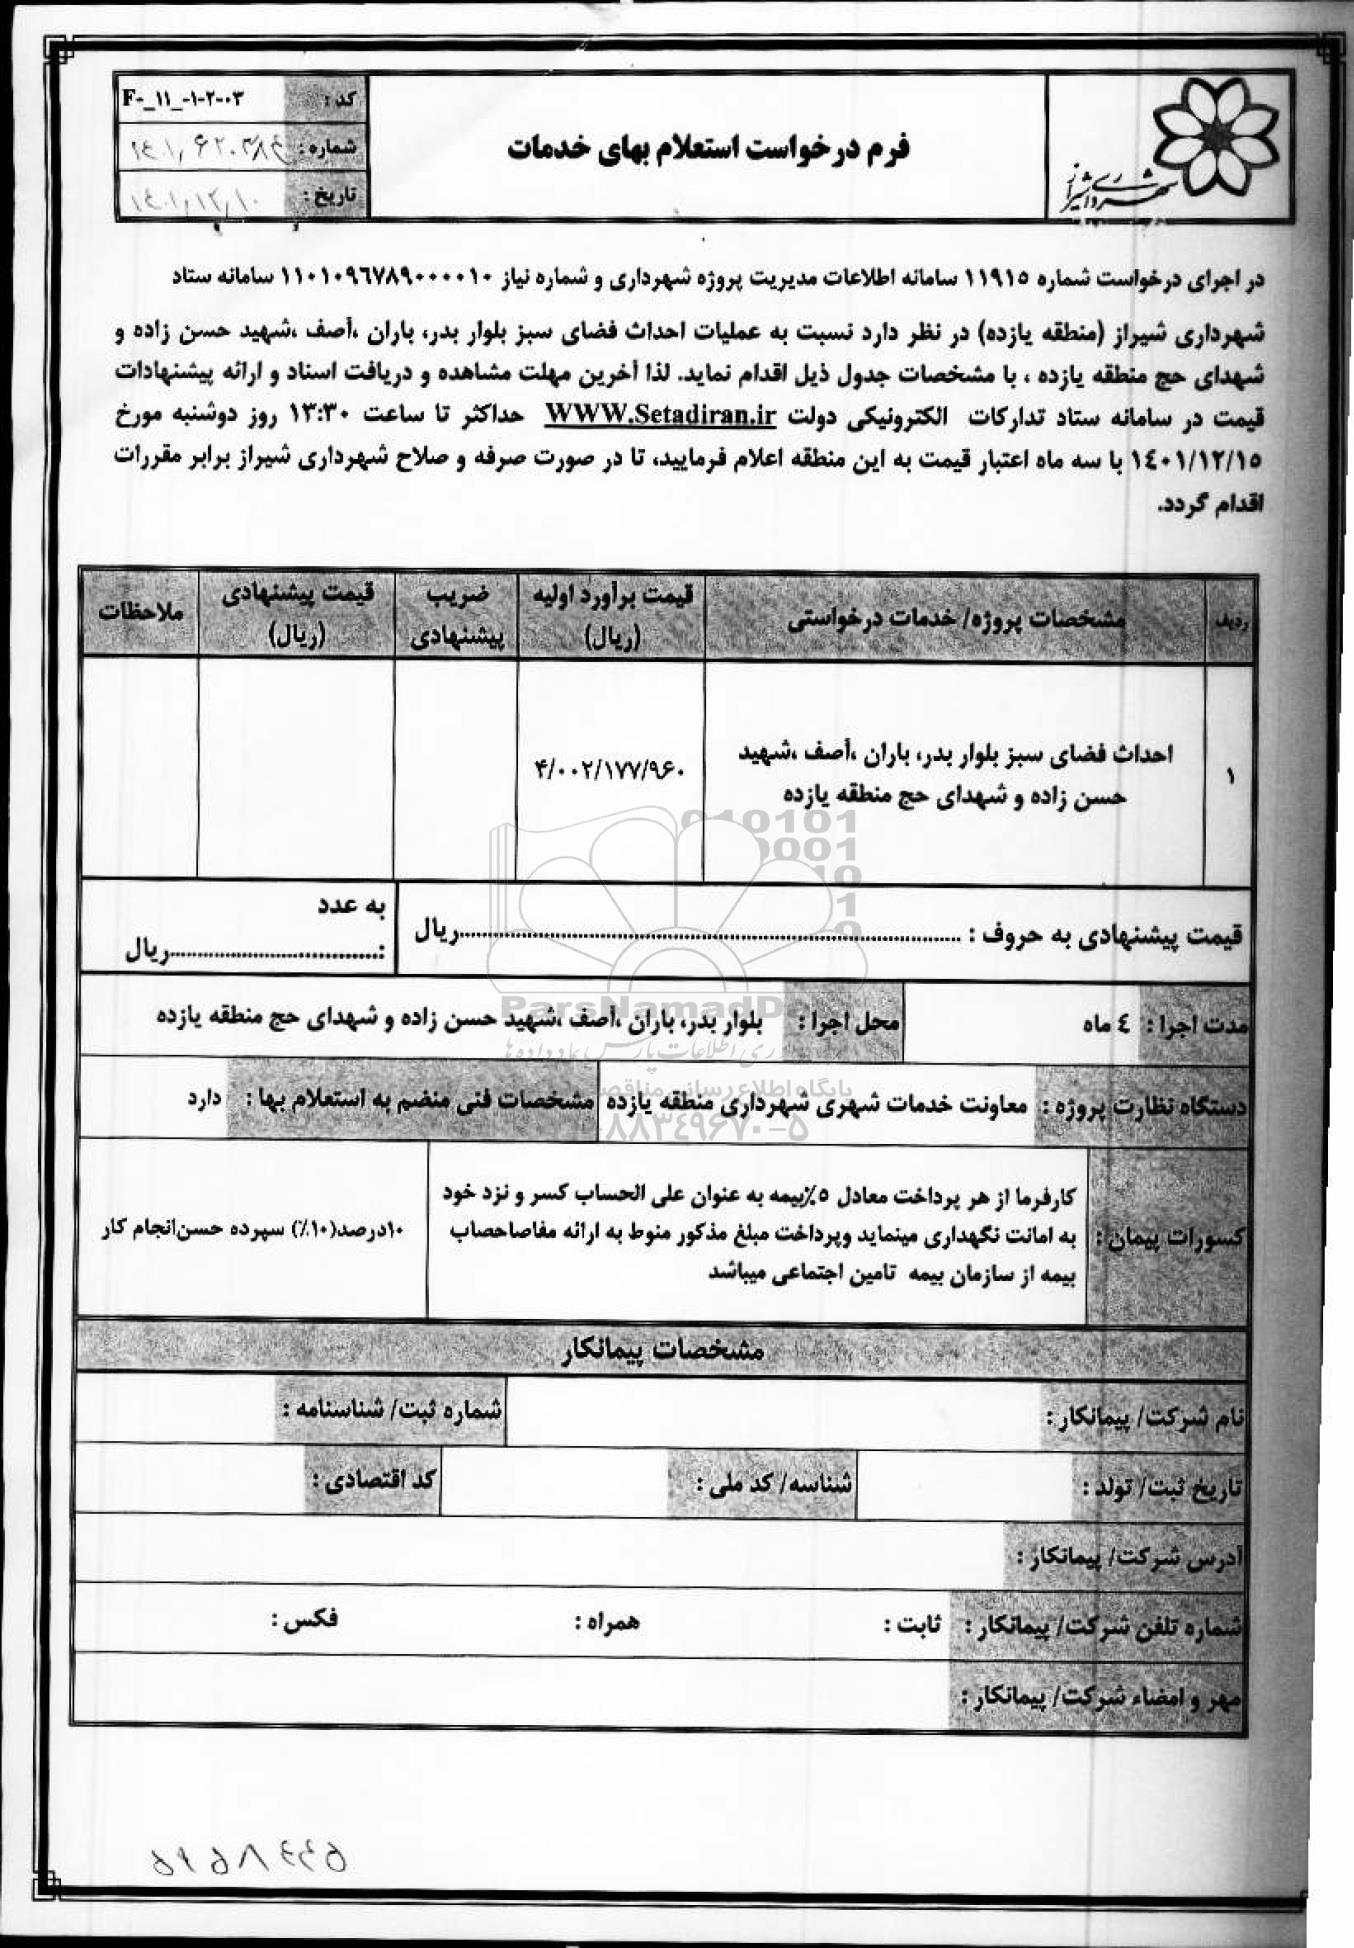 شهرداری شیراز
فرم درخواست استعلام بهای خدمات
کد : F-_۱۱_-۱-۲-۰۳
شماره :
تاریخ : ۱٤۰۱/۱۲/۱۰
در اجرای درخواست شماره ۱۱۹۱۵ سامانه اطلاعات مدیریت پروژه شهرداری و شماره نیاز ۱۱۰۱۰۹٦۷۸۹۰۰۰۰۱۰ سامانه ستاد
شهرداری شیراز (منطقه یازده) در نظر دارد نسبت به عملیات احداث فضای سبز بلوار بدر، باران ،آصف ،شهید حسن زاده و
شهدای حج منطقه یازده ، با مشخصات جدول ذیل اقدام نماید. لذا آخرین مهلت مشاهده و دریافت اسناد و ارائه پیشنهادات
قیمت در سامانه ستاد تدارکات الکترونیکی دولت WWW.Setadiran.ir حداکثر تا ساعت ۱۳:۳۰ روز دوشنبه مورخ
۱٤۰۱/۱۲/۱۵ با سه ماه اعتبار قیمت به این منطقه اعلام فرمایید، تا در صورت صرفه و صلاح شهرداری شیراز برابر مقررات
اقدام گردد.
ردیف مشخصات پروژه/ خدمات درخواستی قیمت برآورد اولیه (ریال) ضریب پیشنهادی قیمت پیشنهادی (ریال) ملاحظات
۱ احداث فضای سبز بلوار بدر، باران ،آصف ،شهید
حسن زاده و شهدای حج منطقه یازده
۴/۰۰۲/۱۷۷/۹۶۰
قیمت پیشنهادی به حروف : ................ریال
به عدد
:................ریال
مدت اجرا : ٤ ماه محل اجرا : بلوار بدر، باران ،آصف ،شهید حسن زاده و شهدای حج منطقه یازده
دستگاه نظارت پروژه : معاونت خدمات شهری شهرداری منطقه یازده مشخصات فنی منضم به استعلام بها : دارد
کسورات پیمان :
کارفرما از هر پرداخت معادل ۵٪بیمه به عنوان علی الحساب کسر و نزد خود
به امانت نگهداری مینماید وپرداخت مبلغ مذکور منوط به ارائه مفاصاحصاب
بیمه از سازمان بیمه تامین اجتماعی میباشد
۱۰درصد(۱۰٪) سپرده حسن‌انجام کار
مشخصات پیمانکار
نام شرکت/ پیمانکار: شماره ثبت/ شناسنامه :
تاریخ ثبت/ تولد : شناسه/ کد ملی : کد اقتصادی :
آدرس شرکت/ پیمانکار :
شماره تلفن شرکت/ پیمانکار : ثابت : همراه : فکس :
مهر و امضاء شرکت/ پیمانکار :